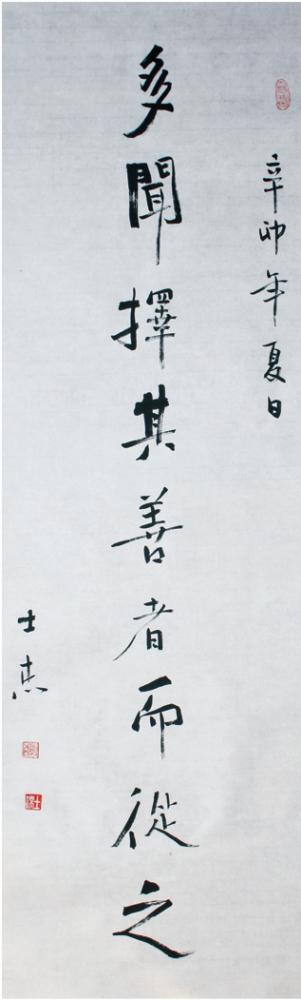 辛卯年夏日
多聞擇其善者而從之
士杰